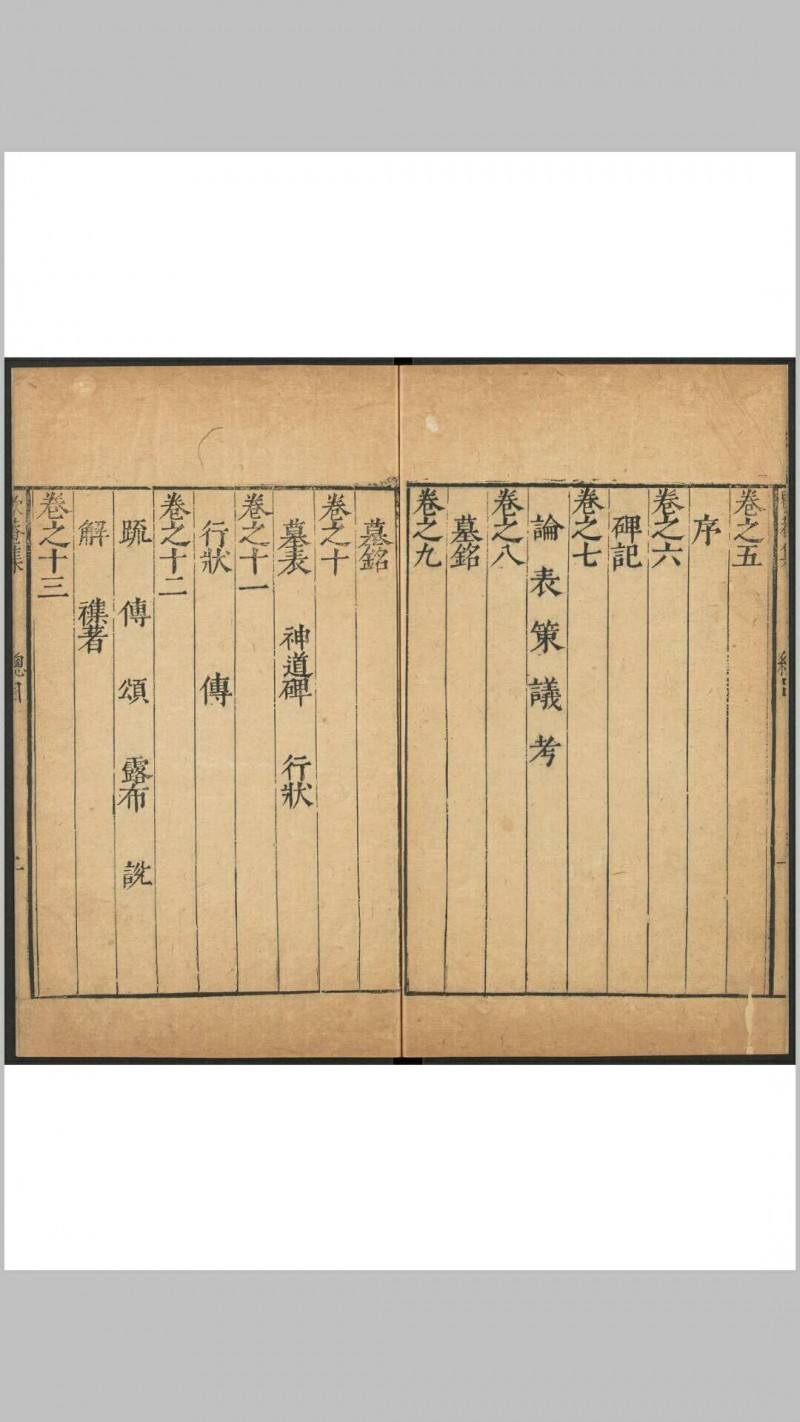 卷之五
序
卷之六
碑記
卷之七
論 表 策 議 考
卷之八
墓銘
卷之九
墓銘
卷之十
墓表 神道碑 行狀
卷之十一
行狀 傳
卷之十二
䟽 傳 頌 露布 說
解 襍著
卷之十三
總目
二